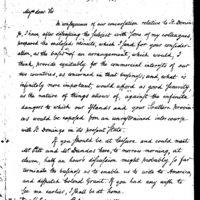 My dear Sir
In consequence of our conversation relative to St. Domin-
go, I have, after debating the subject with some of my colleagues,
prepared the enclosed minute, which I send for your consider-
ation, as the basis of an arrangement, which would, I
think, provide equitably for the commercial interests of our
two countries, as concerned in that business; and, what is
infinitely more important, would afford as good security,
as the nature of things allows of, against the infinite
dangers to which our Islands and your Southern Provin-
ces would be exposed from an unrestrained intercourse
with St. Domingo in its present State.
If you should be at leisure, and could meet
Mr. Pitt and Mr. Dundas here, to-morrow morning, at
eleven, half an hour's discussion might probably so far
terminate the business as to enable us to write to America,
and Grant. If you had any wish to
see me earlier, I shall be at home.